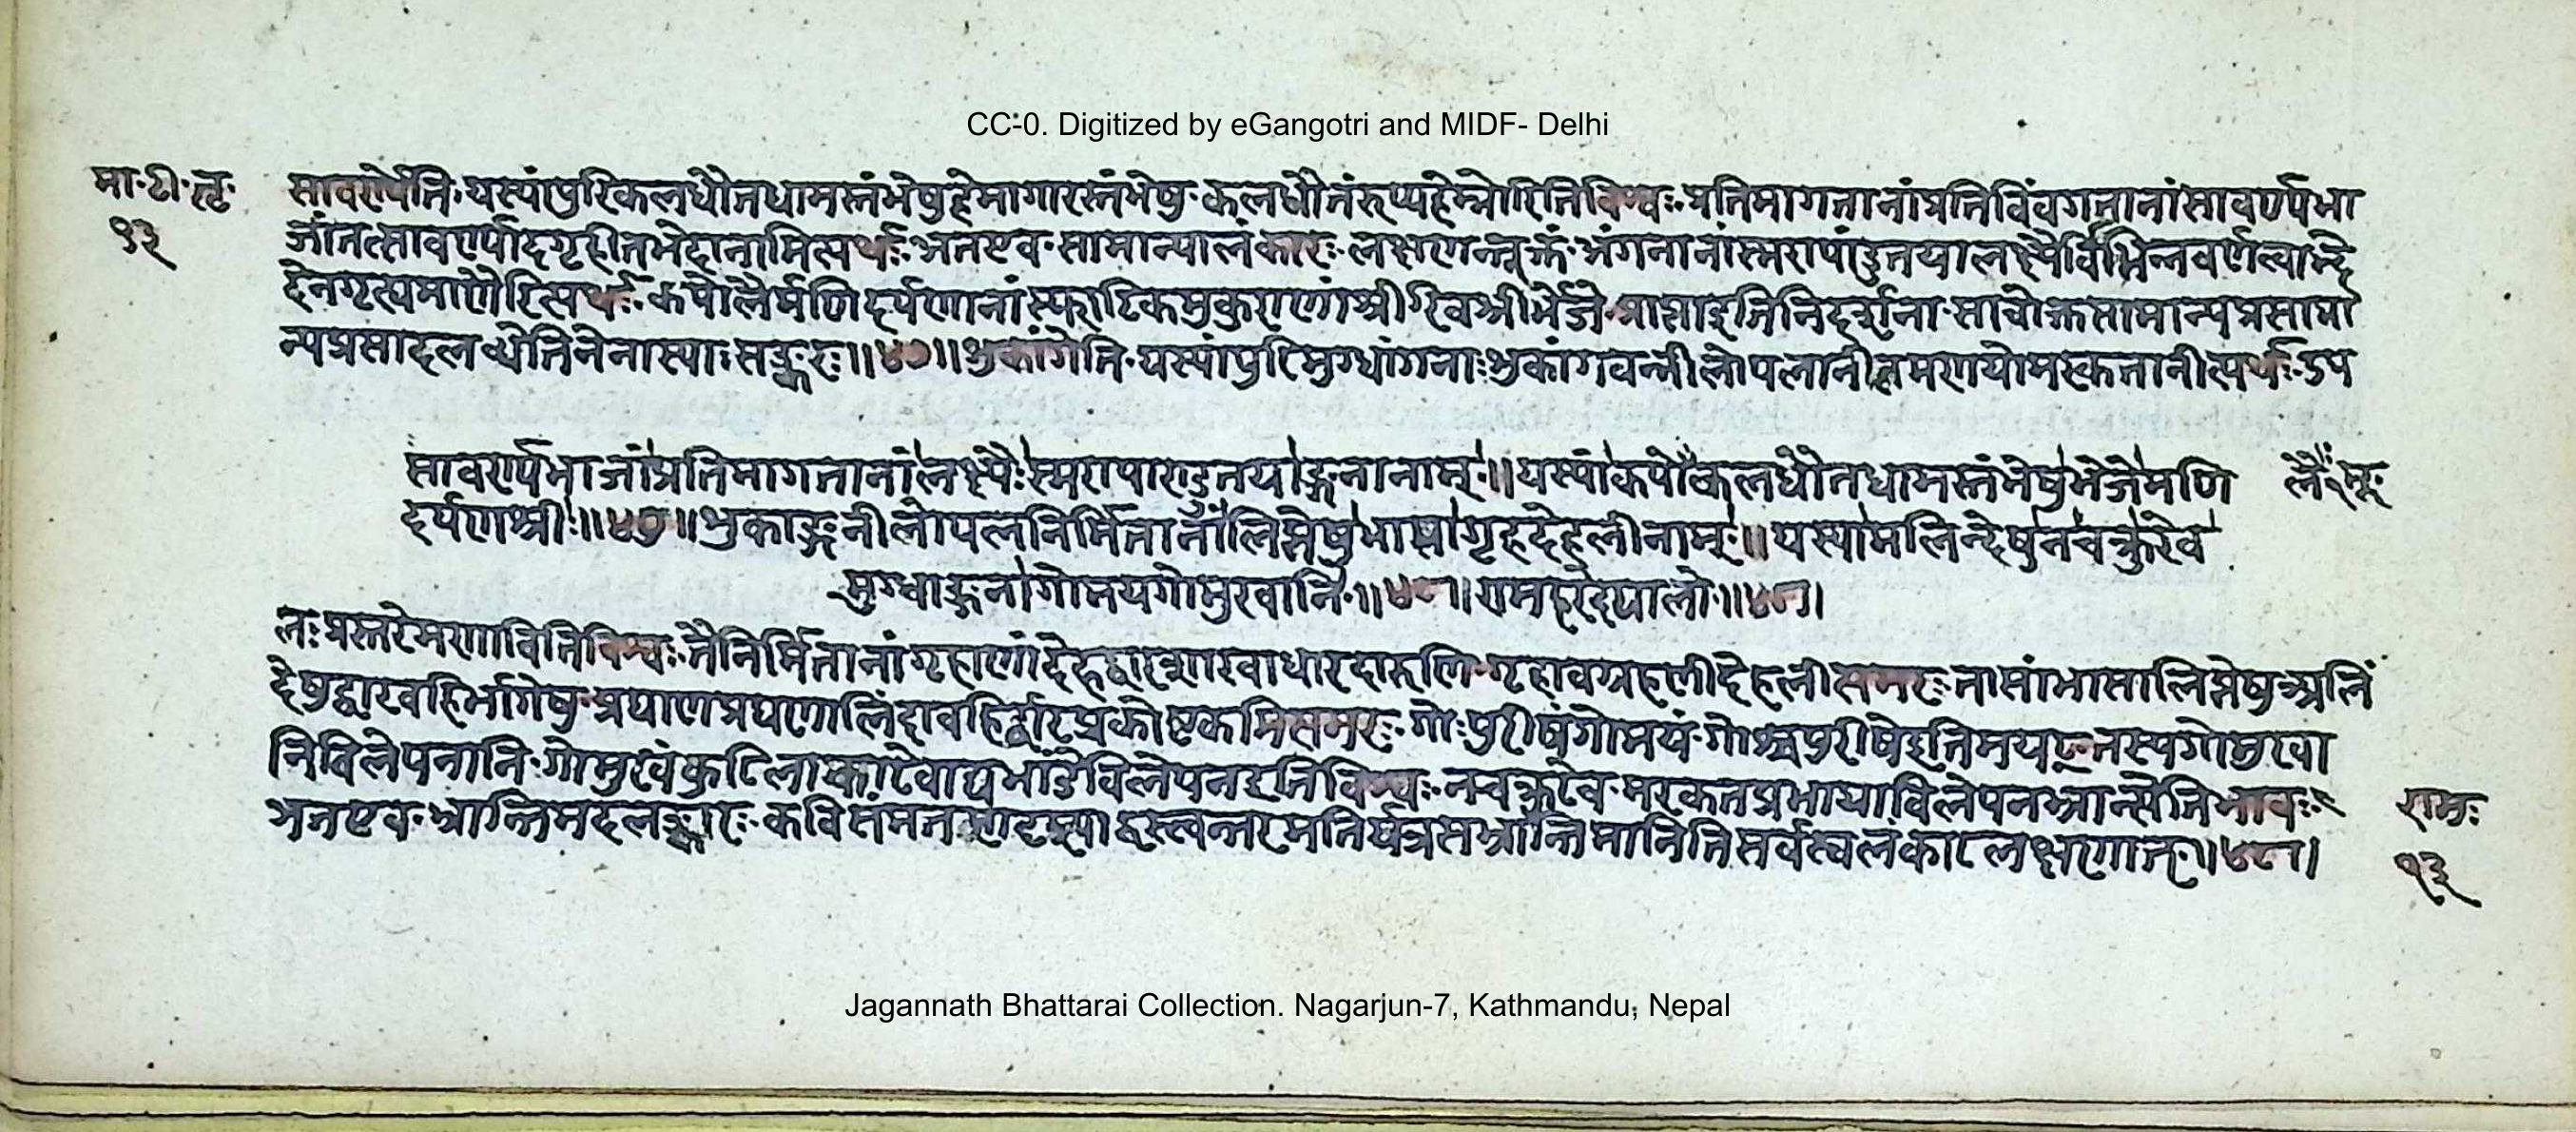 CC-0. Digitized by eGangotri and MIDF- Delhi
मा॰टी॰तृ॰
१३
सावर्ण्येति॰यस्यांपुरिकलधौतधामस्तंभेषुहेमागारस्तंभेषु॰कलधौतंरूप्यहेम्नोरितिविश्वः॰प्रतिमागतानांप्रतिविंवगतानांसावर्ण्यभा
जांतत्सावर्ण्यादगृहीतभेदानामित्यर्थः॰अतएव॰सामान्यालंकारः॰लक्षणन्तूक्तं॰अंगनानांस्मरापांडुतयालक्ष्यैर्विभिन्नवर्णत्वाद्भे
देनगृह्यमाणैरित्यर्थः॰कपोलैर्मणिदर्पणानांस्फाटिकमुकुराणांश्रीरिवश्रीर्भेजे॰
न्यप्रसादलब्धेतितेनास्याःसङ्करः॥४७॥शुकांगेति॰यस्यांपुरिमुग्धांगनाःशुकांगवन्नीलोपलानीलमणयोमरकतानीत्यर्थः॰उप
सावर्ण्यभाजांप्रतिमागतानांलक्ष्यैःस्मरापाण्डुतयाङ्गनानाम्॥यस्यांकपोकलधौतधामस्तंभेषुभेजेमणि
लैः
दर्पणश्रीः॥४७॥शुकाङ्गनीलोपलनिर्मितानांलिप्तेषुभासागृहदेहलीनाम्॥यस्यामलिन्देषुनचक्रुरेव
मुग्धाङ्गनागोमयगोमुखानि॰॥४८॥
लःप्रस्तरेमणावितिविश्वः॰तैर्निर्मितानांगृहाणांदेहलीसमरः॰तासांभासालिप्तेषुअलिं
देषुद्वारवहिर्भागेषु॰प्रघाणप्रघणालिंदावहिर्द्वारप्रकोष्टकमित्यमरः॰गोःपुरीषंगोमयं॰गोश्चपुरीषेइतिमयट्॰तस्यगोमुखा
निविलेपनानि॰गोमुखंकुटिलाकारेवाद्यभांडेविलेपनइतिविश्वः॰नचक्रुरेव॰मरकतप्रभायांविलेपनभ्रान्त्येतिभावः॰
अतएव॰भ्रान्तिमदलङ्कारः॰कविसंमतसादृश्याद्वस्त्वन्तरमतिर्यत्रसभ्रान्तिमानितिसर्वस्वलंकारलक्षणात्॰॥४८॥
रामः
१३
Jagannath Bhattarai Collection. Nagarjun-7, Kathmandu, Nepal